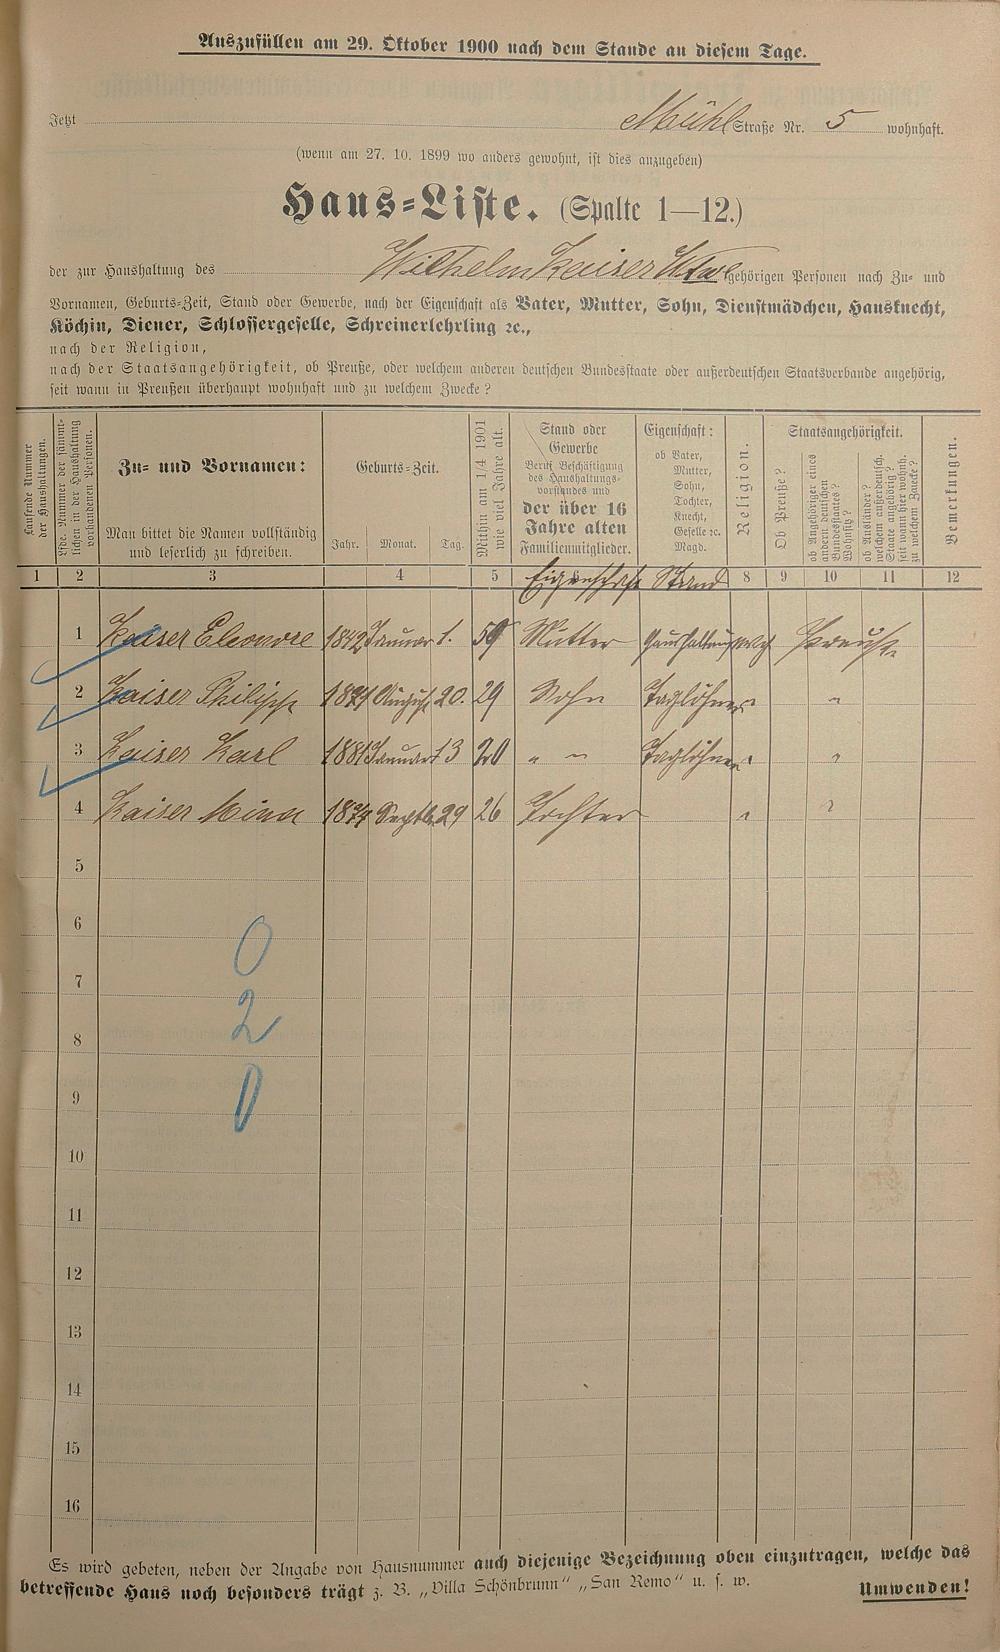 Auszufüllen am 29. Oktober 1900 nach dem Stande an diesem Tage.
Jetzt Mühl Straße Nr. 5 wohnhaft.
(wenn am 27. 10. 1899 wo anders gewohnt, ist dies anzugeben)
Haus-Liste. (Spalte 1—12.)
der zur Haushaltung des Wilhelm Kaiser Wtwe gehörigen Personen nach Zu- und
Vornamen, Geburts-Zeit, Stand oder Gewerbe, nach der Eigenschaft als Vater, Mutter, Sohn, Dienstmädchen, Hausknecht,
Köchin, Diener, Schlossergeselle, Schreinerlehrling ꝛc.,
nach der Religion,
nach der Staatsangehörigkeit, ob Preuße, oder welchem anderen deutschen Bundesstaate oder außerdeutschen Staatsverbande angehörig,
seit wann in Preußen überhaupt wohnhaft und zu welchem Zwecke?
Laufende Nummer
der Haushaltungen.
Lfde. Nummer der sämmt-
lichen in der Haushaltung
vorhandenen Personen.
Zu- und Vornamen:
Man bittet die Namen vollständig
und leserlich zu schreiben.
Geburts-Zeit.
Jahr. Monat. Tag.
Mithin am 1/4 1901
wie viel Jahre alt.
Stand oder
Gewerbe
Beruf, Beschäftigung
des Haushaltungs-
vorstandes und
der über 16
Jahre alten
Familienmitglieder.
Eigenschaft:
ob Vater,
Mutter,
Sohn,
Tochter,
Knecht,
Geselle ꝛc.
Magd.
Religion.
Staatsangehörigkeit.
Ob Preuße?
ob Angehöriger eines
andern deutschen
Bundesstaates?
Wohnsitz?
ob Ausländer?
welchem außerdeutsch.
Staate angehörig?
seit wann hier wohnh.
zu welchem Zwecke?
Bemerkungen.
1 2 3 4 5 Eigenschaft Stand 8 9 10 11 12
1 Kaiser Eleonore 1842 Januar 1. 59 Mutter Preuße
2 Kaiser Philipp 1871 August 20. 29 Sohn Taglöhner " "
3 Kaiser Karl 1881 Januar 13 20 " " Taglöhner " "
4 Kaiser Mina 1874 Septb. 29 26 Tochter "
5
6
0
7
2
8
9
0
10
11
12
13
14
15
16
Es wird gebeten, neben der Angabe von Hausnummer auch diejenige Bezeichnung oben einzutragen, welche das
betreffende Haus noch besonders trägt z. B. „Villa Schönbrunn“ „San Remo“ u. s. w. Umwenden!